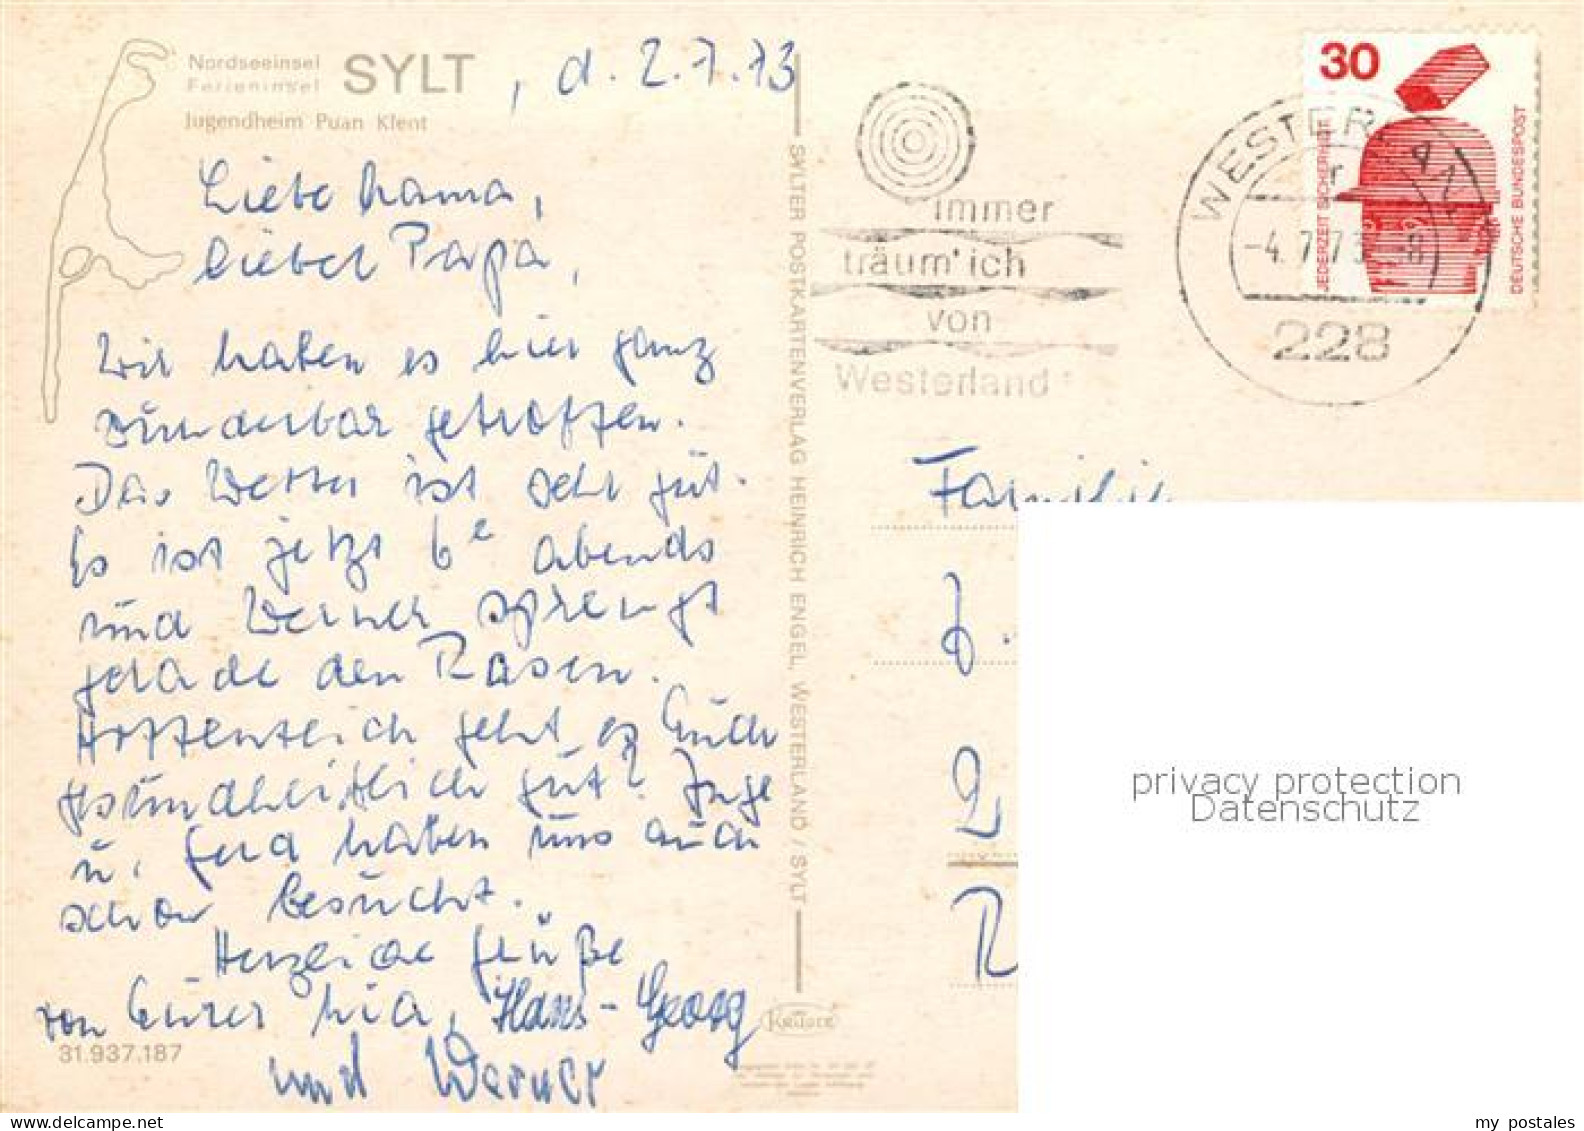 Nordseeinsel
Ferieninsel
SYLT
, d. 2.7.73
Jugendheim Puan Klent
Liebe Mama,
lieber Papa,
Wir haben es hier ganz
wunderbar getroffen.
Das Wetter ist sehr gut.
Es ist jetzt 6e abends
und Werner sprengt
gerade den Rasen.
Hoffentlich geht es Euch
gesundheitlich gut? Inge
u. Gerd haben uns auch
schon besucht.
Herzliche Grüße
von Eurer Mia, Hans-Georg
und Werner
31.937.187
SYLTER POSTKARTENVERLAG HEINRICH ENGEL, WESTERLAND / SYLT
Krüger
immer
träum' ich
von
Westerland
WESTERLAND
-4.7.73
228
30
JEDERZEIT SICHERHEIT
DEUTSCHE BUNDESPOST
Familie
privacy protection
Datenschutz
my postales